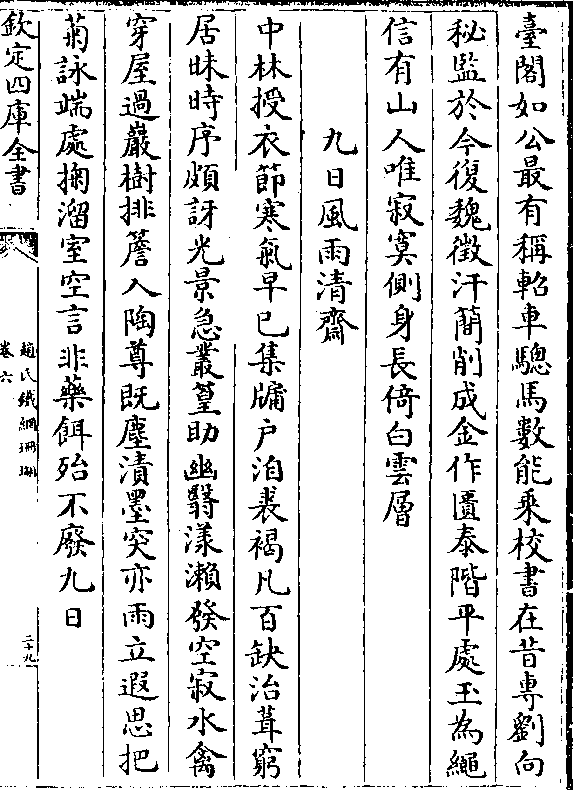 臺閣如公最有稱軺車驄馬數能乘校書在昔専劉向
秘監於今復魏徴汗蕳削成金作匱泰階平處玉為繩
信有山人唯寂寞側身長倚白雲層
九日風雨清齋
中林授衣節寒氣早已集牗户洎裘褐凡百缺治葺窮
居昧時序頗訝光景急叢篁助幽翳漾瀨發空寂水禽
穿屋過巖樹排簷入陶尊既塵漬墨突亦雨立遐思把
菊詠端處掬溜室空言非藥餌殆不廢九日
欽定四庫全書
趙氏鐵網珊瑚
卷六
三十九